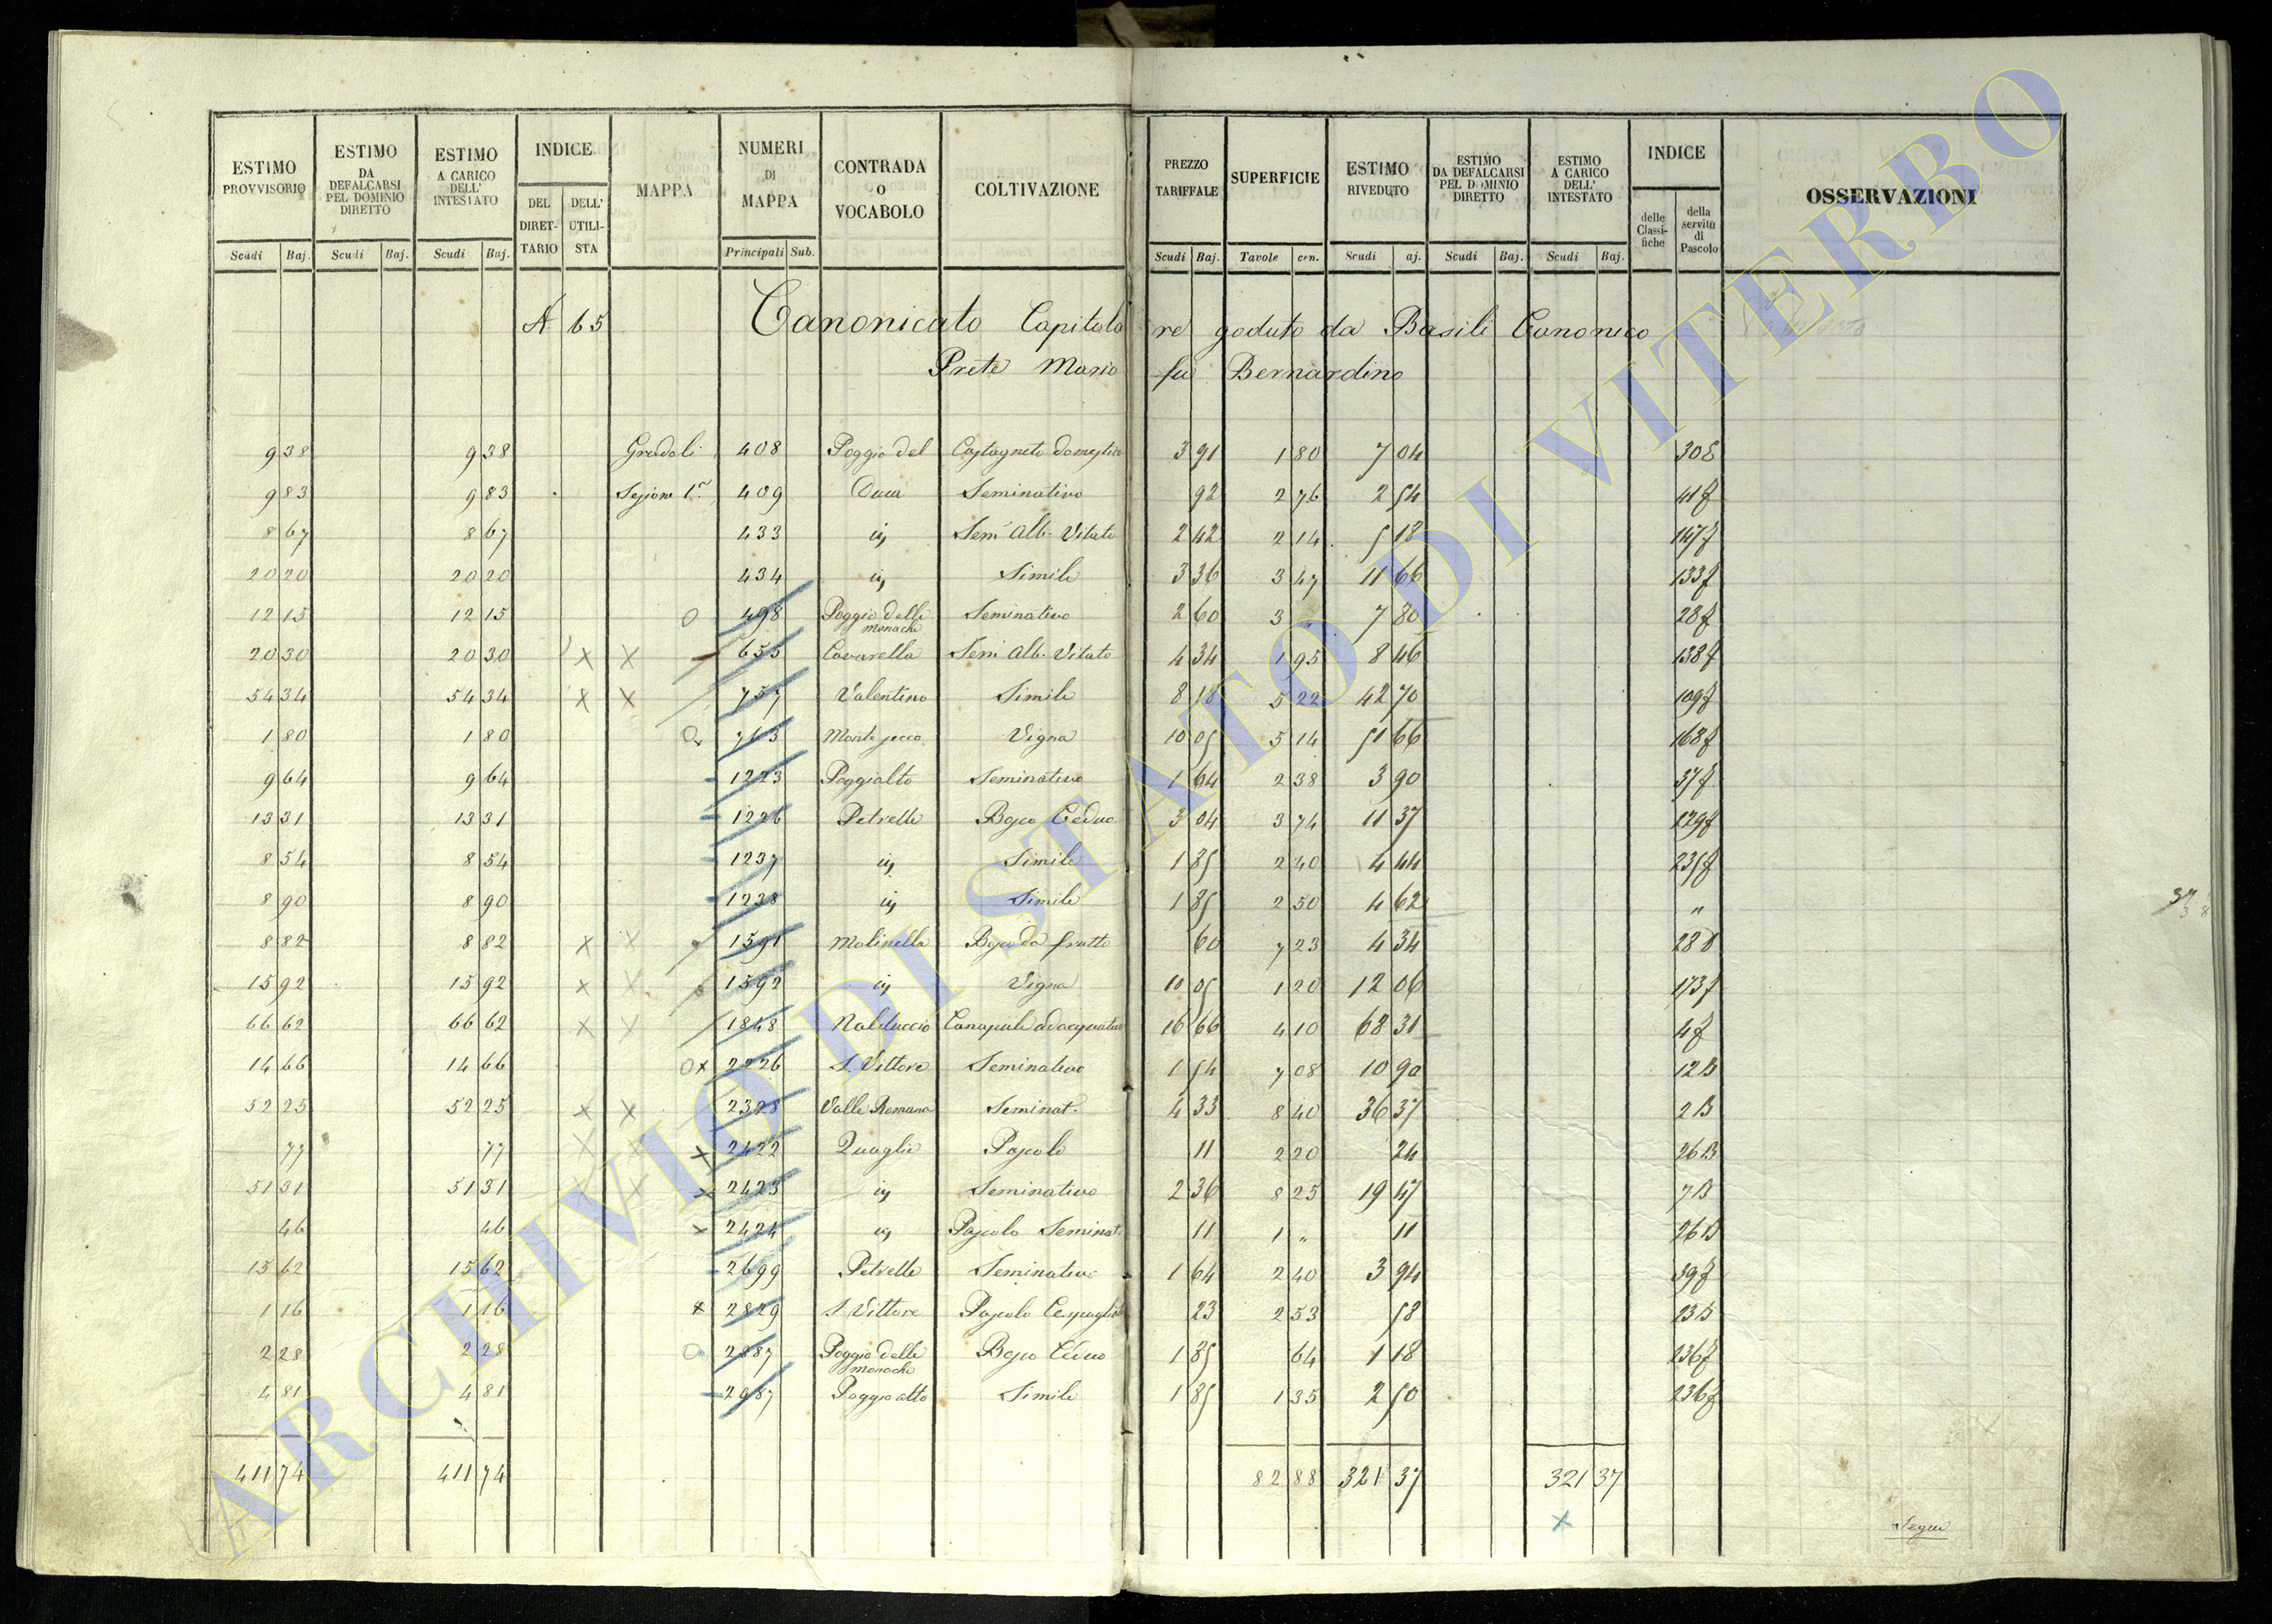 ESTIMO PROVVISORIO Scudi Baj. ESTIMO DA DEFALCARSI PEL DOMINIO DIRETTO Scudi Baj. ESTIMO A CARICO DELL' INTESTATO Scudi Baj. INDICE DEL DIRETTARIO DELL' UTILISTA MAPPA NUMERI DI MAPPA Principali Sub. CONTRADA O VOCABOLO COLTIVAZIONE PREZZO TARIFFALE Scudi Baj. SUPERFICIE Tavole cen. ESTIMO RIVEDUTO Scudi aj. ESTIMO DA DEFALCARSI PEL DOMINIO DIRETTO Scudi Baj. ESTIMO A CARICO DELL' INTESTATO Scudi Baj. INDICE delle Classifiche della servitù di Pascolo OSSERVAZIONI
A 65 Canonicato Capitolare goduto da Basili Canonico
Prete Mario fu Bernardino
9 38 9 38 Gradoli 408 Poggio del Castagneto domestico 3 91 1 80 7 04
9 83 9 83 Sezione 1ª 409 Duca Seminativo 92 2 76 2 54 41f
8 67 8 67 433 Sem Alb. Vitato 2 42 2 14 5 18 147f
20 20 20 20 434 Simile 3 36 3 47 11 66 133f
12 15 12 15 O 498 Poggio delle monache Seminativo 2 60 3 7 80 28f
20 30 20 30 x x 655 Cavarella Sem Alb. Vitato 4 34 1 95 8 46 138f
54 34 54 34 x x 757 Valentino Simile 8 18 5 22 42 70 109f
1 80 1 80 763 Monte secco Vigna 10 05 5 14 51 66 168f
9 64 9 64 1223 Poggialto Seminativo 1 64 2 38 3 90 37f
13 31 13 31 1226 Petrelle Bosco Ceduo 3 04 3 74 11 37 229f
8 54 8 54 1237 Simile 1 85 2 40 4 44 235f
8 90 8 90 1238 Simile 1 85 2 50 4 62 "
8 82 8 82 x x 1591 Molinella Bosco da frutto 60 7 23 4 34
15 92 15 92 x x 1592 Vigna 10 05 1 20 12 06 173f
66 62 66 62 x x 1848 Canapule adacquativo 16 66 4 10 68 31 4f
14 66 14 66 Ox 2226 S. Vittore Seminativo 1 54 7 08 10 90 12B
52 25 52 25 x x 2328 Valle Romana Seminat. 4 33 8 40 36 37 2B
77 77 x 2422 Quaglie Pascolo 11 2 20 24 26B
51 31 51 31 x 2423 Seminativo 2 36 8 25 19 47 7B
46 46 x 2424 Pascolo Seminat. 11 1 " 11 26B
15 62 2699 Petrelle Seminativo 1 64 2 40 3 94 39f
1 16 1 16 x 2829 S. Vittore Pascolo Cespugliato 23 2 53 58 23B
2 28 2 28 O 2887 Poggio delle monache Bosco Ceduo 1 85 64 1 18 236f
4 81 4 81 2987 Poggio alto Simile 1 85 1 35 2 50 236f
411 74 411 74 82 88 321 37 321 37
x
Segue
ARCHIVIO DI STATO DI VITERBO